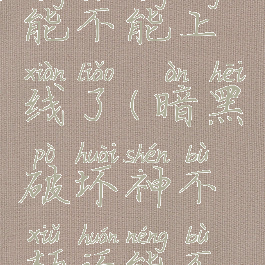 能不能上
xiàn liǎo àn hēi
线了(暗黑
pò huài shén bù
破坏神不
xiū huán néng bù